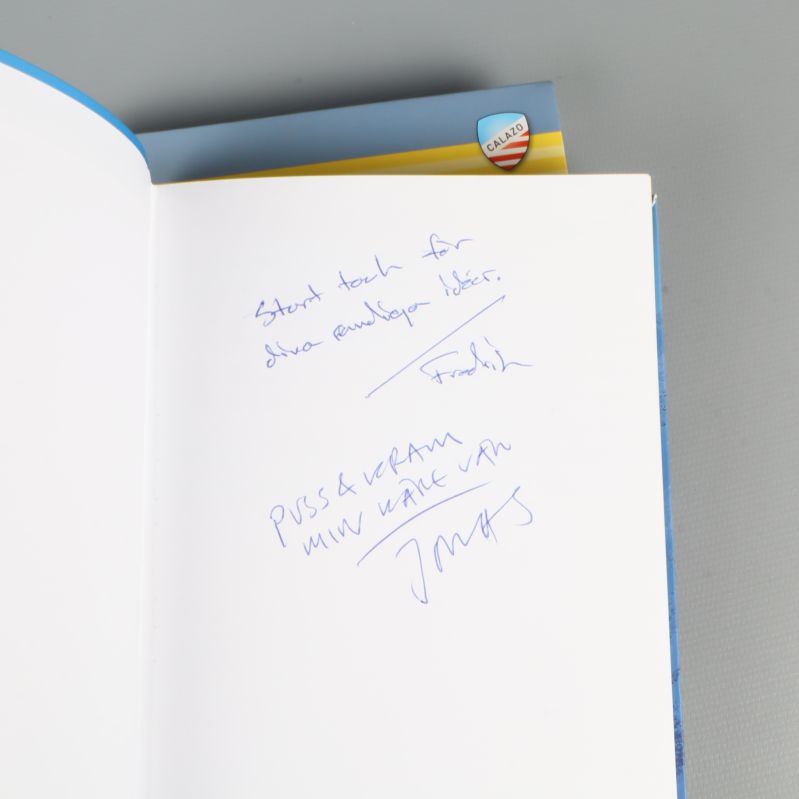 CALAZO
Stort tack för
dina sandiga idéer.
Fredrik
PUSS & KRAM
MIN KÄRE VÄN
JONAS